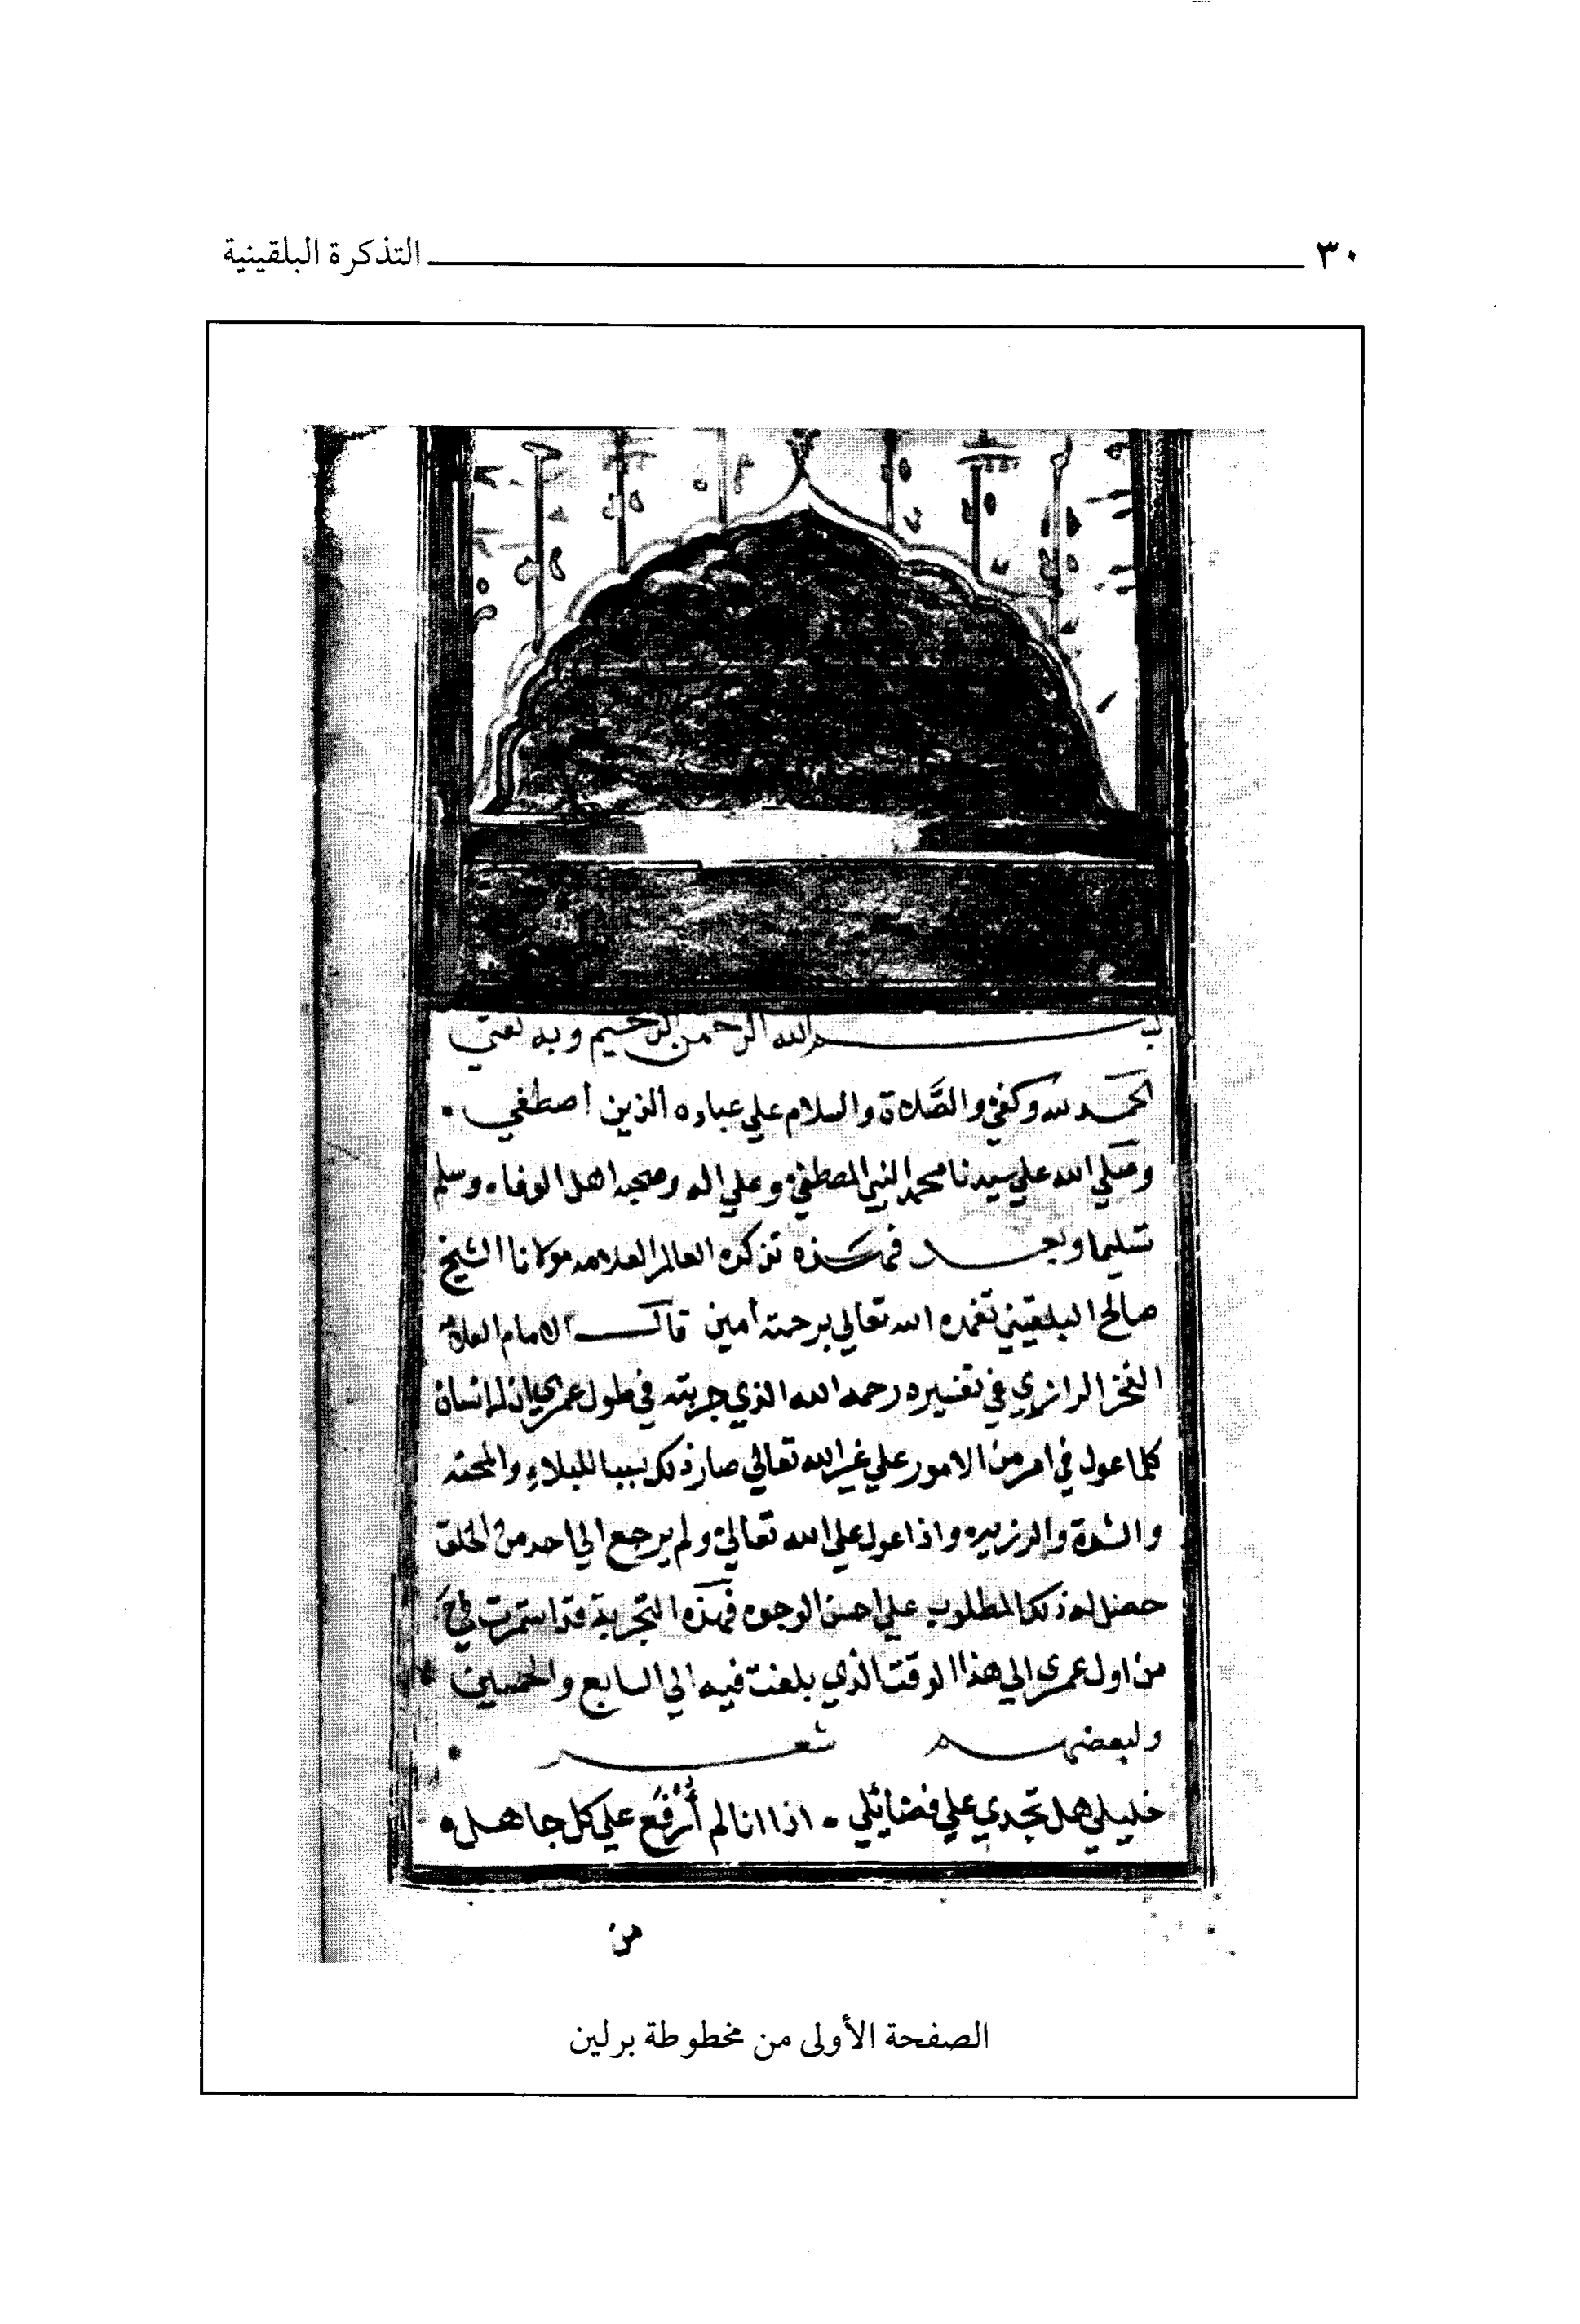 ٣٠ التذكرة البلقينية
بسم الله الرحمن الرحيم وبه ثقتي
الحمد لله وكفى والصَّلاة والسلام علي عباده الذين اصطفي .
وصلي الله علي سيدنا محمد النبي المصطفى وعلي اله وصحبه اهل الوفاء وسلم
تسليما وبعد فهذه تذكرة العالم العلامه مولانا الشيخ
صالح البلقيني تغمده الله تعالي برحمته أمين قال الامام العلامه
الفخر الرازي في تفسيره رحمه الله الذي جربته في طول عمري ان الانسان
كلما عول في امر من الامور علي غير الله تعالي صار ذلك سببا للبلاء والمحنه
والشدة والرزيه واذا عول علي الله تعالى ولم يرجع الي احد من الخلق
حصل له ذلك المطلوب علي احسن الوجوه فهذه التجربة قد استمرت لي
من اول عمري الي هذا الوقت الذي بلغت فيه الي السابع والخمسين
ولبعضهم شعر .
خليلي هل تجدي علي فضائلي . اذا انا لم أُرْفَع علي كل جاهل .
من
الصفحة الأولى من مخطوطة برلين